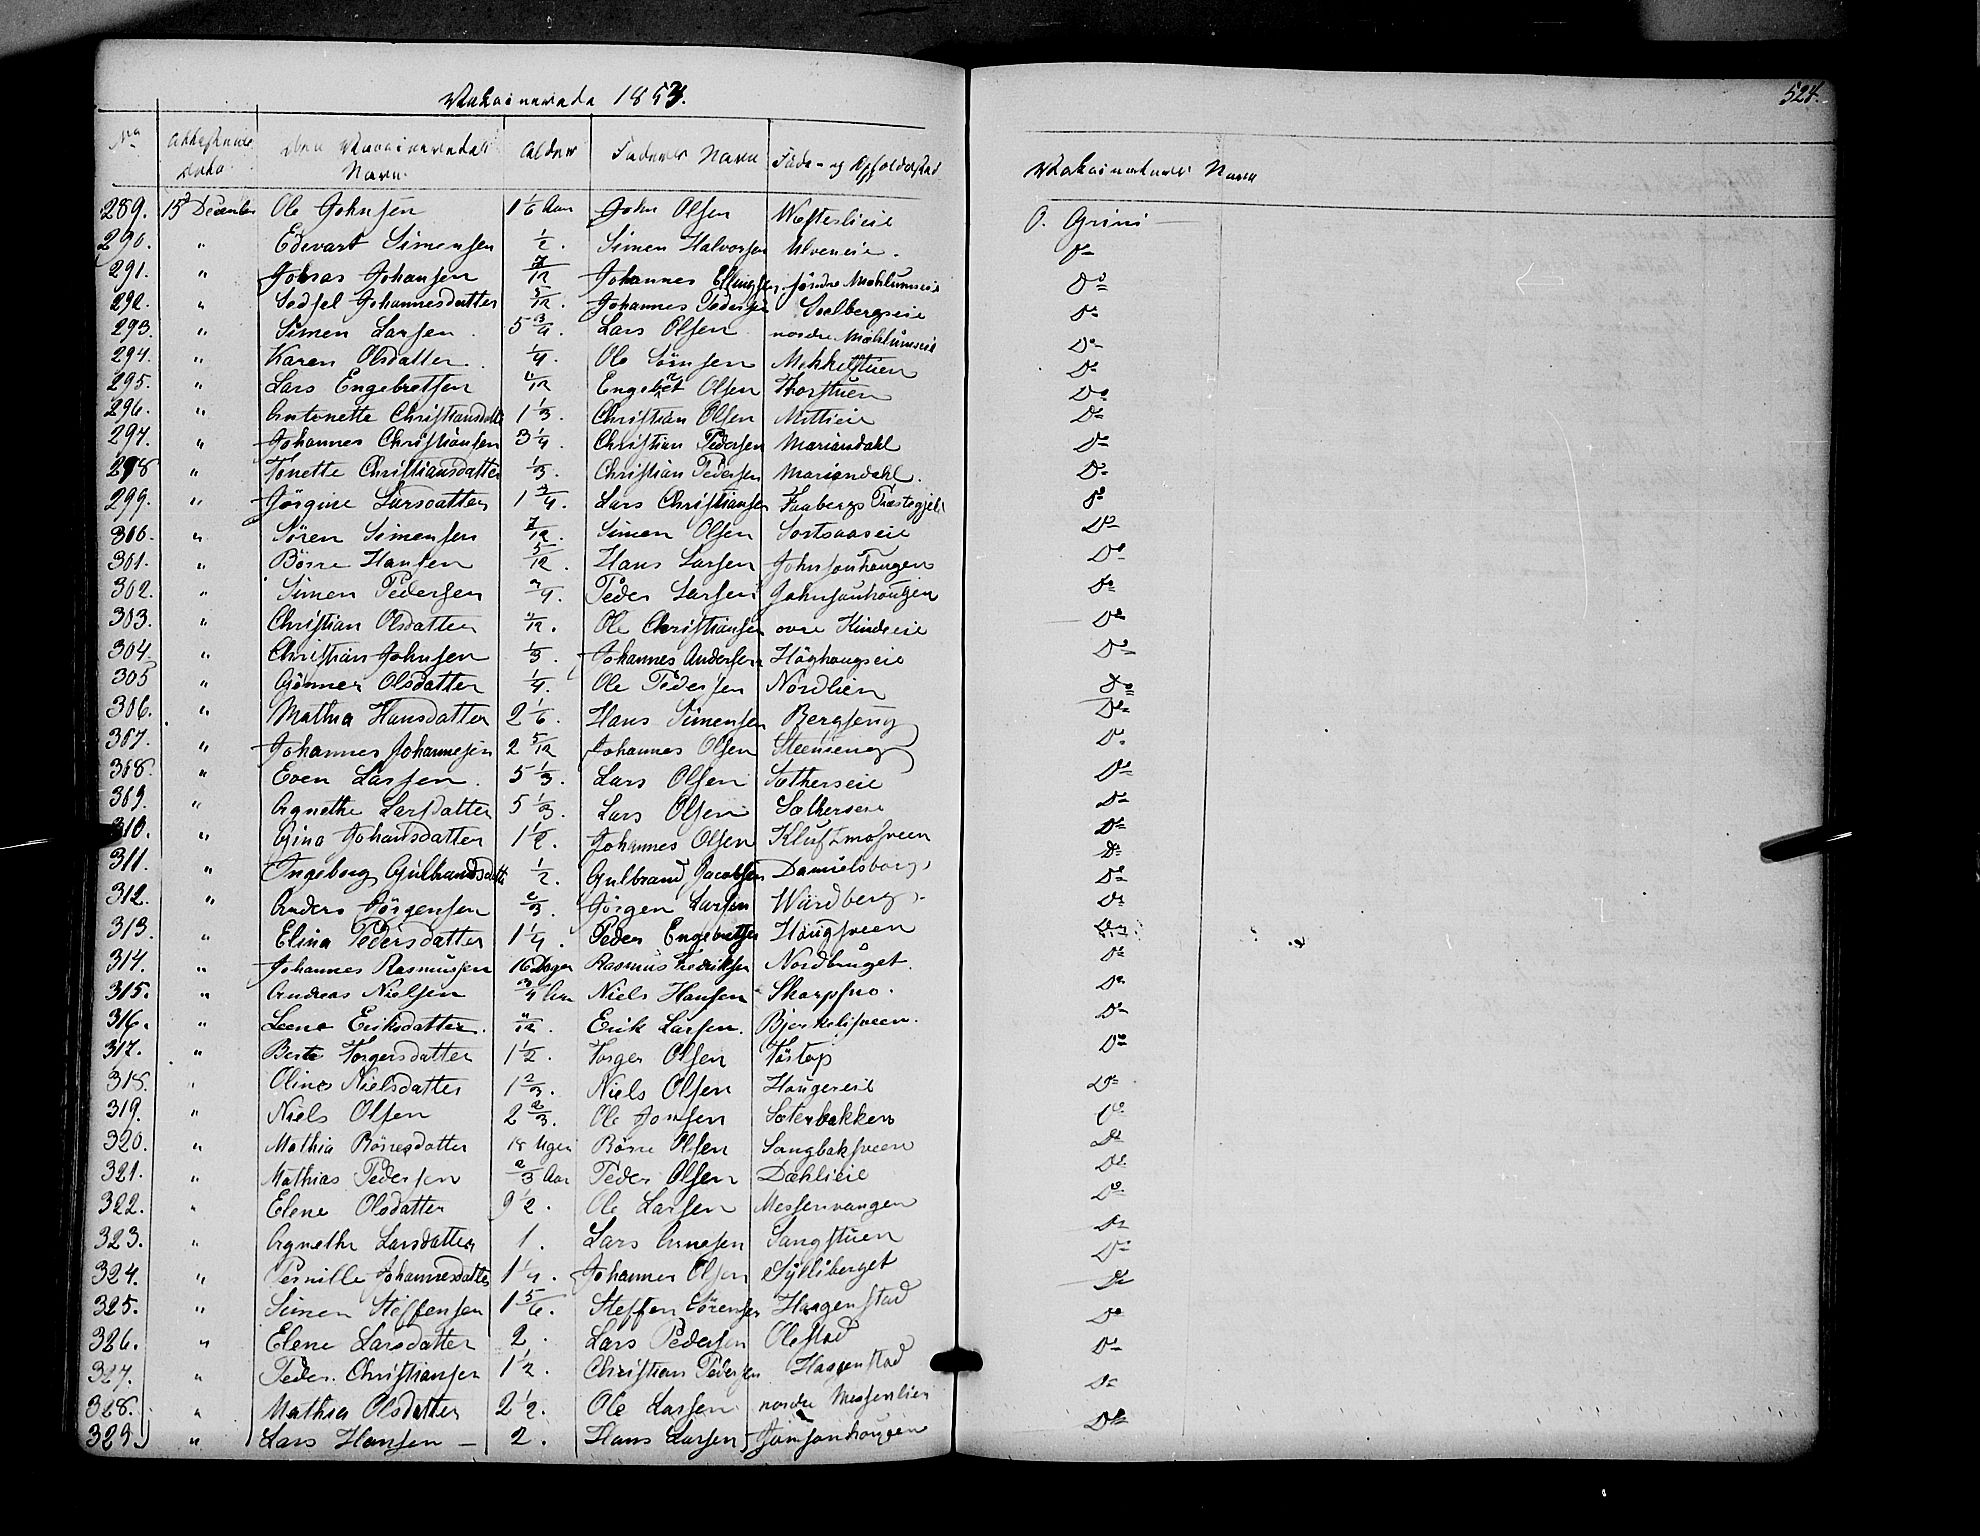 Vakcinerede 1853.
524.
No Attestens Dato Den Vaccineredes Navn. Alder Faders Navn Føde- og Opholdssted Vakcinateurs Navn
289. 15de December Ole Johnsen 1 1/6 Aar John Olsen O. Grini
290. " Edevart Simensen 1/2. Simen Halvorsen Ulveneie. Do
291. " Johannes Johansen 7/12 Johannes søndre Mæhlumseie Do
292. " Johannesdatter 5/12. Johannes Pedersen Solbergseie Do
293. " Simen Larsen. 5 3/4. Lars Olsen nordre Mæhlumseie Do
294. " Karen Olsdatter 1/4. Ole Simensen Do
295. " Lars Engebretsen /12 Engebret Olsen Thorstuen Do
296. " Antonette Christiansdatter 1 1/3. Christian Olsen Do
297. " Johannes Christiansen 3 1/4. Christian Pedersen Mariendahl Do
298 " Tonette Christiansdatter 1/3. Christian Pedersen Mariendahl. Do
299. " Jørgine Larsdatter 1 3/4. Lars Christiansen Faabergs Præstegjeld Do
300. " Søren Simensen 7/12. Simen Olsen Do
301. " Børre Hansen 5/12. Hans Larsen Johnsonhaugen Do
302. " Simen Pedersen 3/4. Peder Larsen Johnsonhougen Do
303. " Christian Olsdatter /12. Ole Christiansen Do
304. " Christian Johnsen 1/3. Johannes Andersen Høghougseie Do
305 " Gønner Olsdatter 1/4. Ole Pedersen Nordlien Do
306. " Mathea Hansdatter 2 1/6. Hans Simensen Bergseng Do
307. " Johannes Johannesen 2 5/12 Johannes Olsen Steenseng Do
308. " Even Larsen. 5 1/3. Lars Olsen Sætherseie Do
309. " Agnethe Larsdatter 5 1/3. Lars Olsen Sætherseie Do
310. " Gina Johansdatter 1 1/2. Johannes Olsen Do
311. " Ingeborg Gulbrandsdatter 1/2. Gulbrand Jacobsen Danielsborg Do
312. " Anders Jørgensen 2/3. Jørgen Larsen Wardberg. Do
313. " Elina Pedersdatter 1 1/4. Peder Engebretsen Hougsveen Do
314. " Johannes Rasmussen 16 Dager Rasmus Fredriksen Nordbruget. Do
315. " Andreas Nielsen 3/4 Aar Niels Hansen Skarpsno. Do
316. " Lene Eriksdatter. /12. Erik Larsen. Bjerkelisveen. Do
317. " Berte Torgersdatter 1 1/2. Torger Olsen Do
318. " Oline Nielsdatter 1 2/3. Niels Olsen Haugeseie Do
319. " Niels Olsen 2 2/3. Ole Jonsen Sæterbakken Do
320. " Mathia Børresdatter 18 Uger Børre Olsen Sangbaksveen Do
321. " Mathias Pedersen 2/3 Aar Peder Olsen Dæhlieie Do
322. " Elene Olsdatter 9 1/2. Ole Larsen Messenvangen Do
323. " Agnethe Larsdatter 1. Lars Arnesen Sangstuen Do
324. " Pernille Johannesdatter 1 1/4. Johannes Olsen Sylliberget Do
325. " Simen Steffensen 1 5/6. Steffen Sørensen Haagenstad Do
326. " Elene Larsdatter 2. Lars Pedersen Olestad Do
327. " Peder. Christiansen 1 1/2. Christian Pedersen Haagenstad Do
328. " Mathea Olsdatter 2 1/2. Ole Larsen nordre Messenlien Do
329. " Lars Hansen – 2. Hans Larsen Jonsonhougen Do